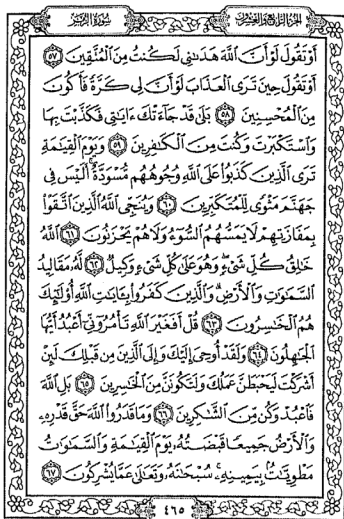 الجزء الرابع والعشرون
سورة الزمر
أَوْ تَقُولَ لَوْ أَنَّ ٱللَّهَ هَدَىٰنِى لَكُنتُ مِنَ ٱلْمُتَّقِينَ ٥٧
أَوْ تَقُولَ حِينَ تَرَى ٱلْعَذَابَ لَوْ أَنَّ لِى كَرَّةً فَأَكُونَ
مِنَ ٱلْمُحْسِنِينَ ٥٨ بَلَىٰ قَدْ جَآءَتْكَ ءَايَـٰتِى فَكَذَّبْتَ بِهَا
وَٱسْتَكْبَرْتَ وَكُنتَ مِنَ ٱلْكَـٰفِرِينَ ٥٩ وَيَوْمَ ٱلْقِيَـٰمَةِ
تَرَى ٱلَّذِينَ كَذَبُوا۟ عَلَى ٱللَّهِ وُجُوهُهُم مُّسْوَدَّةٌ ۚ أَلَيْسَ فِى
جَهَنَّمَ مَثْوًى لِّلْمُتَكَبِّرِينَ ٦٠ وَيُنَجِّى ٱللَّهُ ٱلَّذِينَ ٱتَّقَوْا۟
بِمَفَازَتِهِمْ لَا يَمَسُّهُمُ ٱلسُّوٓءُ وَلَا هُمْ يَحْزَنُونَ ٦١ ٱللَّهُ
خَـٰلِقُ كُلِّ شَىْءٍ ۖ وَهُوَ عَلَىٰ كُلِّ شَىْءٍ وَكِيلٌ ٦٢ لَّهُۥ مَقَالِيدُ
ٱلسَّمَـٰوَٰتِ وَٱلْأَرْضِ ۗ وَٱلَّذِينَ كَفَرُوا۟ بِـَٔايَـٰتِ ٱللَّهِ أُو۟لَـٰٓئِكَ
هُمُ ٱلْخَـٰسِرُونَ ٦٣ قُلْ أَفَغَيْرَ ٱللَّهِ تَأْمُرُوٓنِّىٓ أَعْبُدُ أَيُّهَا
ٱلْجَـٰهِلُونَ ٦٤ وَلَقَدْ أُوحِىَ إِلَيْكَ وَإِلَى ٱلَّذِينَ مِن قَبْلِكَ لَئِنْ
أَشْرَكْتَ لَيَحْبَطَنَّ عَمَلُكَ وَلَتَكُونَنَّ مِنَ ٱلْخَـٰسِرِينَ ٦٥ بَلِ ٱللَّهَ
فَٱعْبُدْ وَكُن مِّنَ ٱلشَّـٰكِرِينَ ٦٦ وَمَا قَدَرُوا۟ ٱللَّهَ حَقَّ قَدْرِهِۦ
وَٱلْأَرْضُ جَمِيعًا قَبْضَتُهُۥ يَوْمَ ٱلْقِيَـٰمَةِ وَٱلسَّمَـٰوَٰتُ
مَطْوِيَّـٰتٌۢ بِيَمِينِهِۦ ۚ سُبْحَـٰنَهُۥ وَتَعَـٰلَىٰ عَمَّا يُشْرِكُونَ ٦٧
٤٦٥